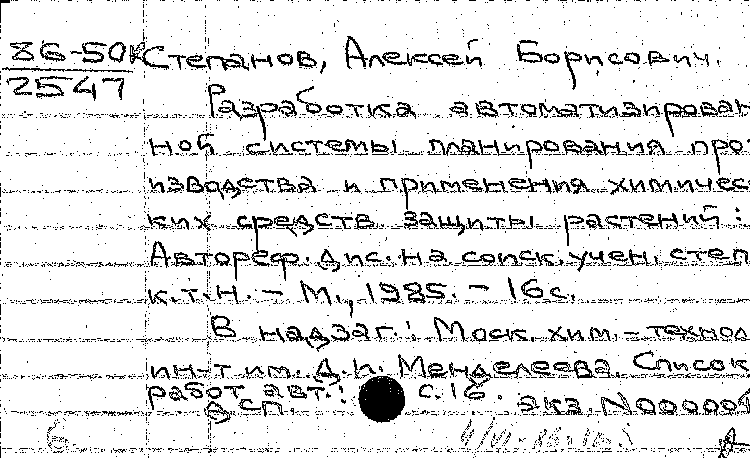 86-50к Степанов, Алексей Борисович.
2547
Разработка автоматизирован
ной системы планирования про-
изводства и применения химичес
ких средств защиты растений:
Автореф. дис. на соиск. учен. степ
к.т.н. - М., 1985. - 16с.
В надзаг.: Моск. хим.-технол
ин-т им. Д.И. Менделеева. Список
работ авт.: с.16.
ВСП. экз. N000004